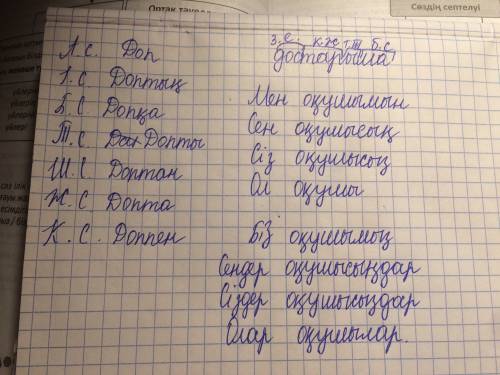 Ортақ тәуелд
Сөздің септелуі
А.с. Доп
І.с. Доптың
Б.С Допқа
Т.С Допты
Ш.С. Доптан
Ж.С Допта
К.С. Доппен
з.е. к.ж т.т б.с
достарыма
Мен оқушымын
Сен оқушысың
Сіз оқушысыз
Ол оқушы
Біз оқушымыз
Сендер оқушысыңдар
Сіздер оқушысыздар
Олар оқушылар.